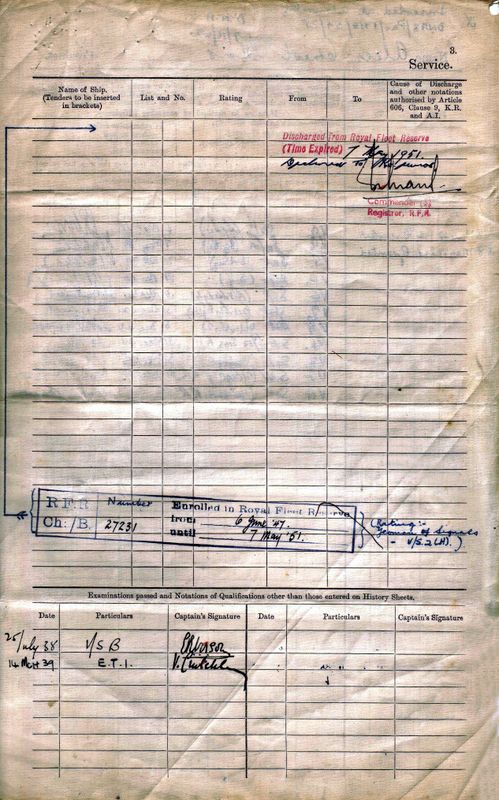 3.
Service.
Name of Ship.
(Tenders to be inserted
in brackets)
List and No.
Rating
From
To
Cause of Discharge
and other notations
authorised by Article
606, Clause 9, K.R.
and A.I.
Discharged from Royal Fleet Reserve
(Time Expired) 7 May 1951.
Commander (S)
Registrar, R.F.R.
R F R Number Enrolled in Royal Fleet Reserve
Ch:/B. 27231 from 6 June '47.
until 7 May '51.
(Rating:-
Yeoman of Signals
- V/S.2(H).)
Examinations passed and Notations of Qualifications other than those entered on History Sheets.
Date Particulars Captain's Signature Date Particulars Captain's Signature
25/July 38 V/S B
14 Mch 39 E.T.1.